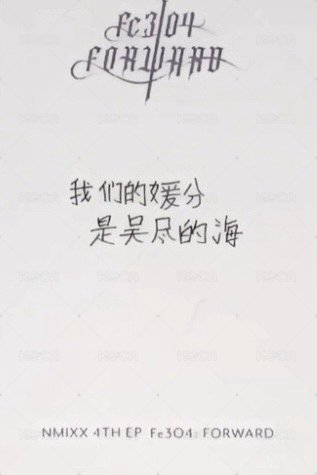 Fe3O4
FORWARD
我们的媛分
是吴尽的海
NMIXX 4TH EP Fe3O4: FORWARD